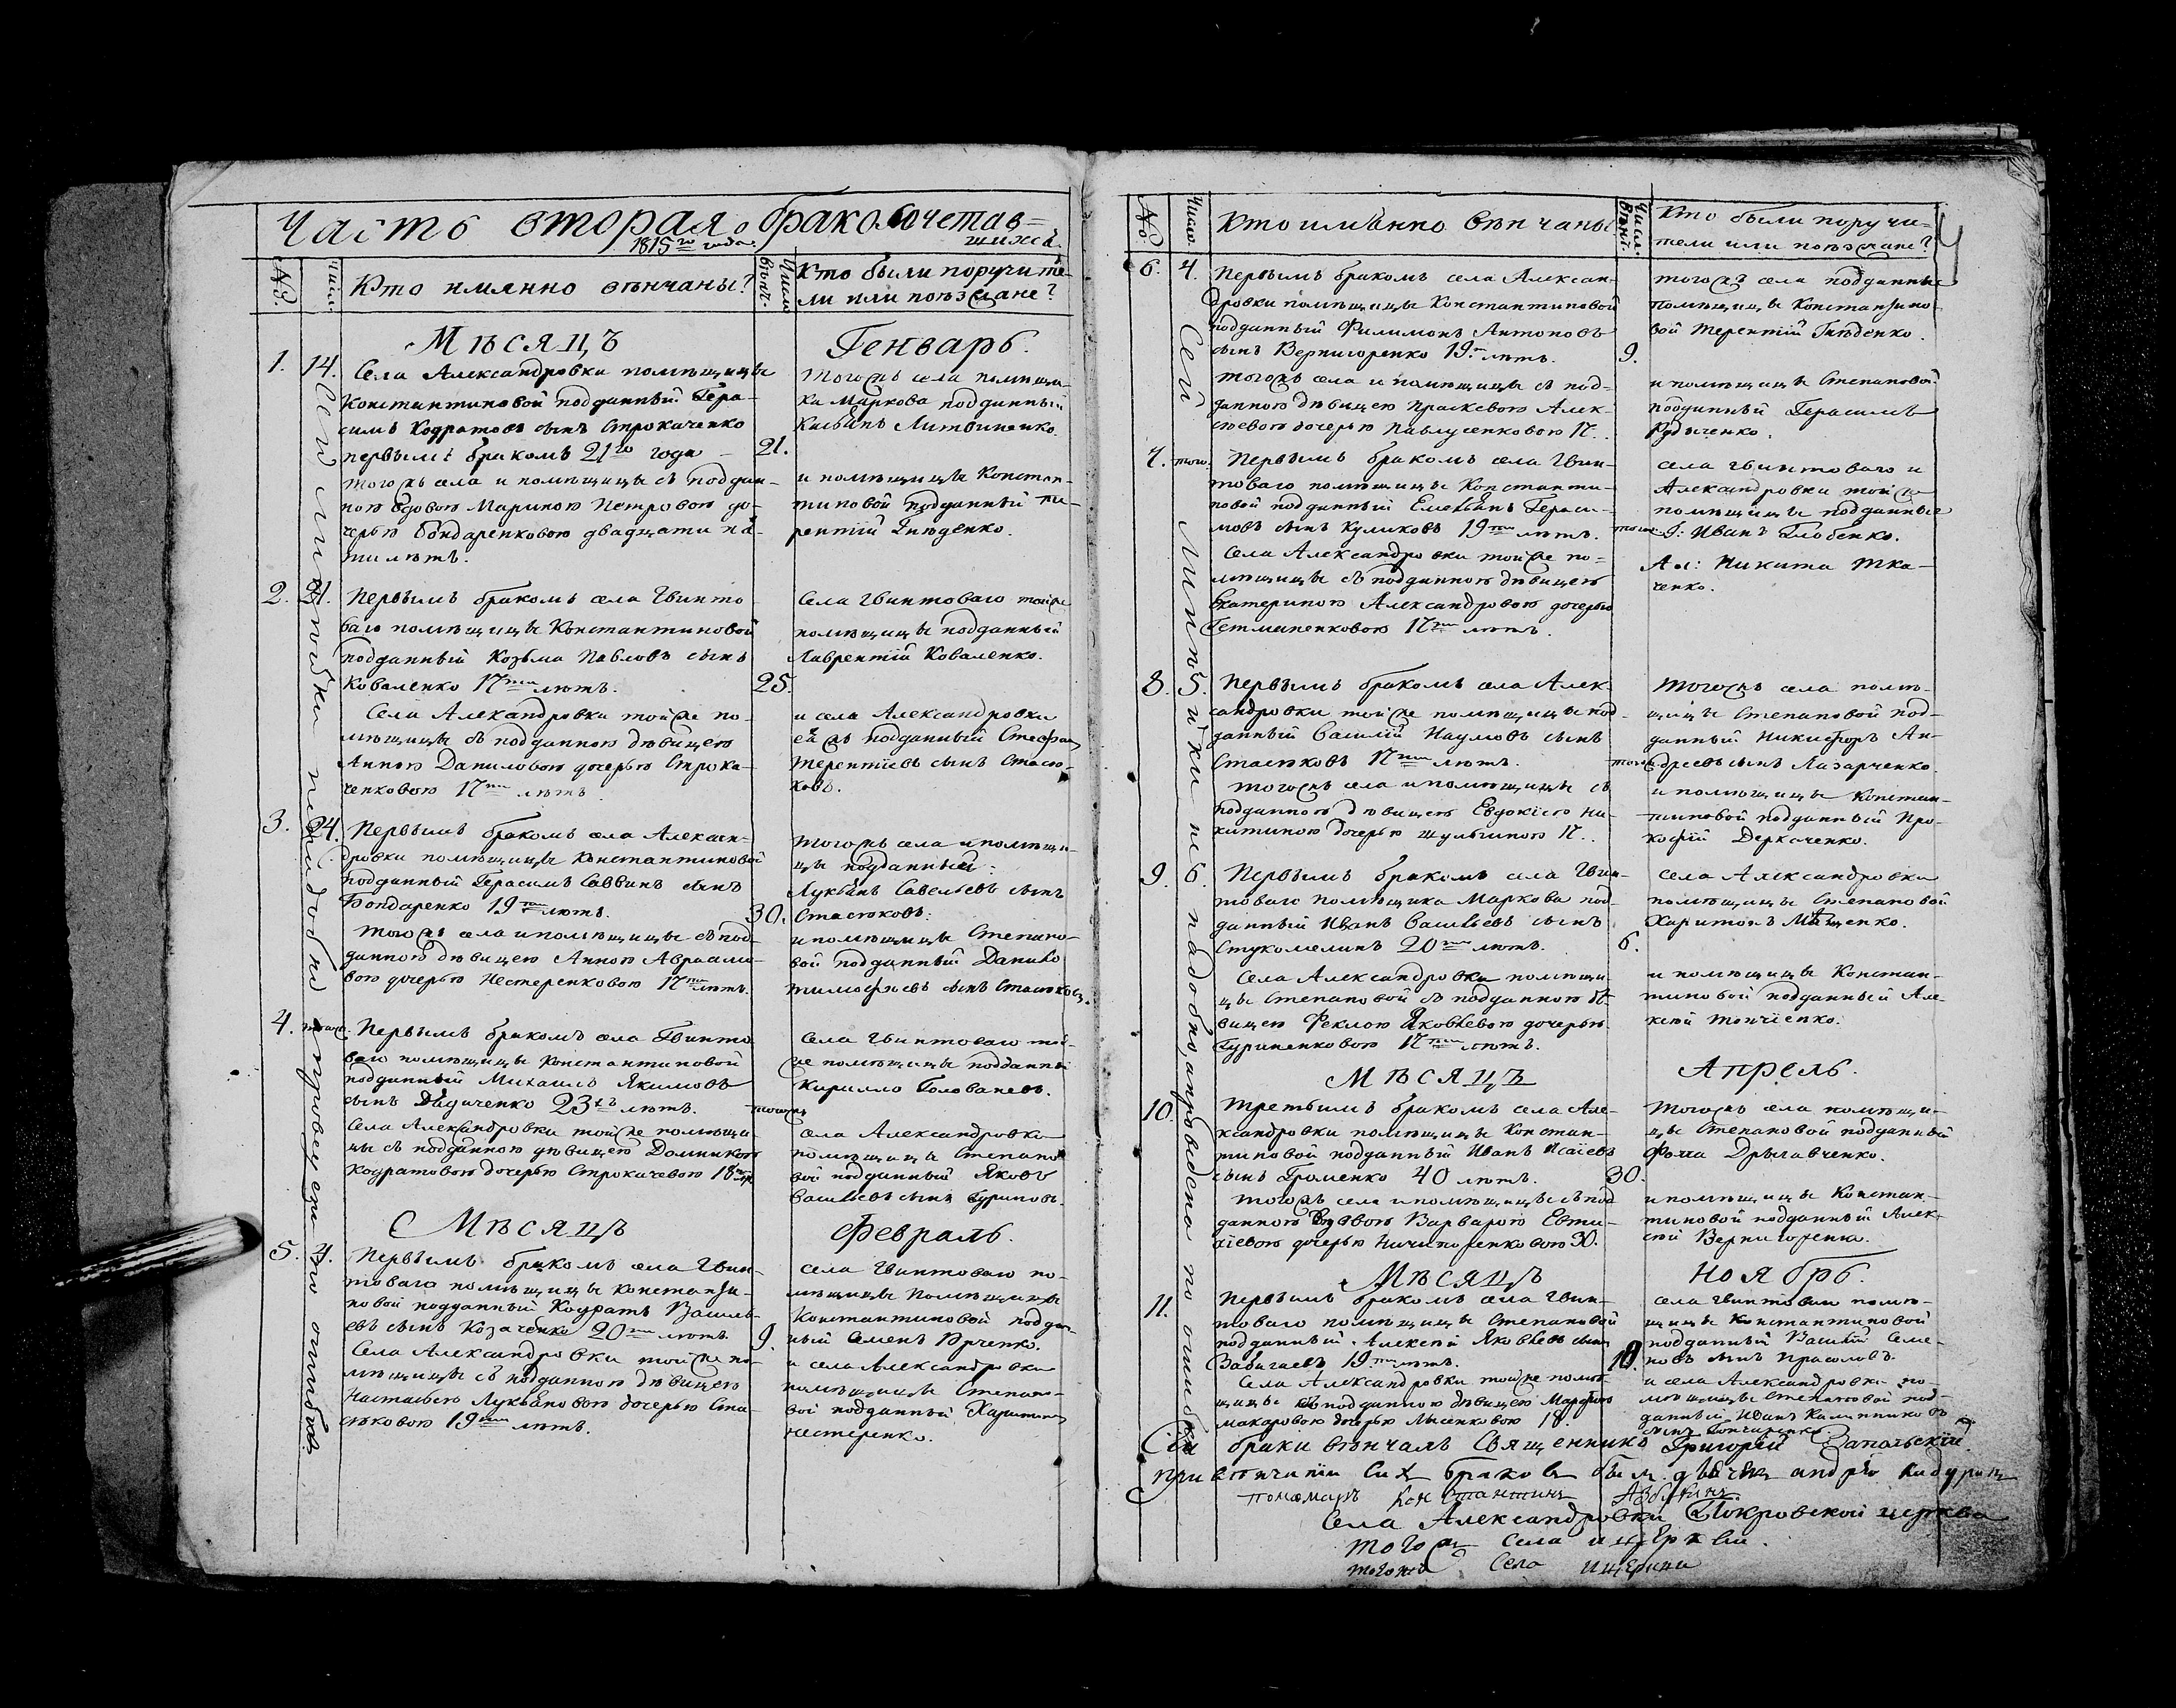 Часть вторая о бракосочетав=
шихся.
1815го года
№.
Числ.
Кто имянно вѣнчаны?
Число вѣнч.
Кто были поручите-
ли или поѣзжане?
Мѣсяцъ
Генварь.
1. 14.
Села Александровки помѣщицы
Константиновой подданный Гера-
симъ Кодратовъ сынъ Строкаченко
первымъ бракомъ 21го года
21.
тогожъ села и помѣщицы съ поддан-
ною вдовою Мариною Петровою до-
черью Бондаренковою двадцати пя-
ти лѣтъ.
Тогожъ села помѣщи-
ка Маркова подданный
Касьянъ Литвиненко.
и помѣщицы Констан-
тиновой подданный Те-
рентій Гнѣденко.
2. 21.
Первымъ бракомъ села Гвинто-
ваго помѣщицы Константиновой
подданный Козьма Павловъ сынъ
Коваленко 17ти лѣтъ.
25.
Села Александровки тойже по-
мѣщицы съ подданною дѣвицею
Анною Даниловою дочерью Строка-
ченковою 17ти лѣтъ.
Села Гвинтоваго тойже
помѣщицы подданный
Лаврентій Коваленко.
и села Александровки
еяжъ подданный Стефанъ
Терентіевъ сынъ Стасю-
ковъ.
3. 24.
Первымъ бракомъ села Алексан-
дровки помѣщицы Константиновой
подданный Герасимъ Саввинъ сынъ
Бондаренко 19ти лѣтъ.
30.
Тогожъ села и помѣщицы съ под-
данною дѣвицею Анною Авраамо-
вою дочерью Нестеренковою 17ти лѣтъ.
Тогожъ села и помѣщи-
цы подданный:
Лукьянъ Савельевъ сынъ
Стасюковъ:
и помѣщицы Степано-
вой подданный Данило
Тимофѣевъ сынъ Стасюковъ.
4. тогожъ.
Первымъ бракомъ села Гвинто-
ваго помѣщицы Константиновой
подданный Михаилъ Якимовъ
сынъ Дядиченко 23хъ лѣтъ.
тогожъ
Села Александровки тойже помѣщи-
цы съ подданною дѣвицею Домникою
Кодратовою дочерью Строкачевою 18ти лѣ.
Села Гвинтоваго той-
же помѣщицы подданный
Кирилло Голованевъ.
села Александровки
помѣщицы Степано-
вой подданный Яковъ
Васильевъ сынъ Гуриновъ.
Мѣсяцъ
Февраль.
5. 4.
Первымъ бракомъ села Гвин-
товаго помѣщицы Константи-
новой подданный Кодратъ Василь-
евъ сынъ Козаченко 20ти лѣтъ.
9.
Села Александровки тойже по-
мѣщицы съ подданною дѣвицею
Настасьею Лукьяновою дочерью Ста-
сюковою 19ти лѣтъ.
Села Гвинтоваго по-
мѣщицы Помѣщицы
Константиновой поддан-
ный Семенъ Юрченко.
и села Александровки
помѣщицы Степано-
вой подданный Харитонъ
Нестеренко.
№.
Число.
Кто имянно вѣнчаны
Числ. вѣнч.
Кто были поручи-
тели или поѣзжане?
6. 4.
Первымъ бракомъ села Алексан-
дровки помѣщицы Константиновой
подданный Филимонъ Антоновъ
сынъ Вернигоренко 19ти лѣтъ.
9.
тогожъ села и помѣщицы съ под-
данною дѣвицею Прасковею Алек-
сѣевою дочерью Павлусенковою 17.
тогожъ села подданные
помѣщицы Константино-
вой Терентій Гнѣденко.
и помѣщицы Степановой
подданный Герасимъ
Рудыченко.
7. того.
Первымъ бракомъ села Гвин-
товаго помѣщицы Константи-
новой подданный Емельянъ Гераси-
мовъ сынъ Куликовъ 19ти лѣтъ.
тогож.
Села Александровки тойже по-
мѣщицы съ подданною дѣвицею
Екатериною Александровою дочерью
Гетманенковою 17ти лѣтъ.
села Гвинтоваго и
Александровки тойже
помѣщицы подданные
Г: Иванъ Глобенко.
Ал: Никита Тка-
ченко.
8. 5.
Первымъ бракомъ села Алек-
сандровки тойже помѣщицы под-
данный Василій Наумовъ сынъ
Стасюковъ 17ти лѣтъ.
тогож
тогожъ села и помѣщицы съ
подданною дѣвицею Евдокіею Ни-
китиною дочерью Шульгиною 17.
Тогожъ села помѣ-
щицы Степановой под-
данный Никифоръ Ан-
дреевъ сынъ Лазарченко.
и помѣщицы Констан-
тиновой подданный Про-
кофій Деркаченко.
9. 6.
Первымъ бракомъ села Гвин-
товаго помѣщика Маркова под-
данный Иванъ Васильевъ сынъ
Стукомелинъ 20ти лѣтъ.
6.
Села Александровки помѣщи-
цы Степановой съ подданною дѣ-
вицею Феклою Яковлевою дочерью
Гуриненковою 17ти лѣтъ.
села Александровки
помѣщицы Степановой
Харитонъ Мащенко.
и помѣщицы Констан-
тиновой подданный Але-
ксѣй
Мѣсяцъ
Апрель.
10.
Третьимъ бракомъ села Але-
ксандровки помѣщицы Констан-
тиновой подданный Иванъ Исаіевъ
сынъ Громенко 40 лѣтъ.
30.
тогожъ села и помѣщицы съ под-
данною вдовою Варварою Евти-
хіевою дочерью Ничипоренковою 30.
Тогожъ села помѣщи-
цы Степановой подданный
Фома Дрыгавченко.
и помѣщицы Констан-
тиновой подданный Алек-
сѣй Вернигоренко.
Мѣсяцъ
Ноябрь.
11.
Первымъ бракомъ села Гвин-
товаго помѣщицы Степановой
подданный Алексѣй Яковлевъ сынъ
Забигаевъ 19ти лѣтъ.
10.
Села Александровки тойже помѣ-
щицы съ подданною дѣвицею Марфою
Макаровою дочерью Лысенковою 18.
села Гвинтоваго помѣ-
щицы Константиновой
подданный Василій Семе-
новъ сынъ Прасоловъ.
и села Александровки по-
мѣщицы Степановой под-
данный Иванъ Калинниковъ
сынъ Гончаренко.
Сіи браки вѣнчалъ Священникъ Григорій Запольскій.
При вѣнчаніи сих браковъ был дьячекъ андрѣй
пономаръ Константинъ
Села Александровки Покровской церкви
Тогожъ села и церкви.
тогожъ села и церкви